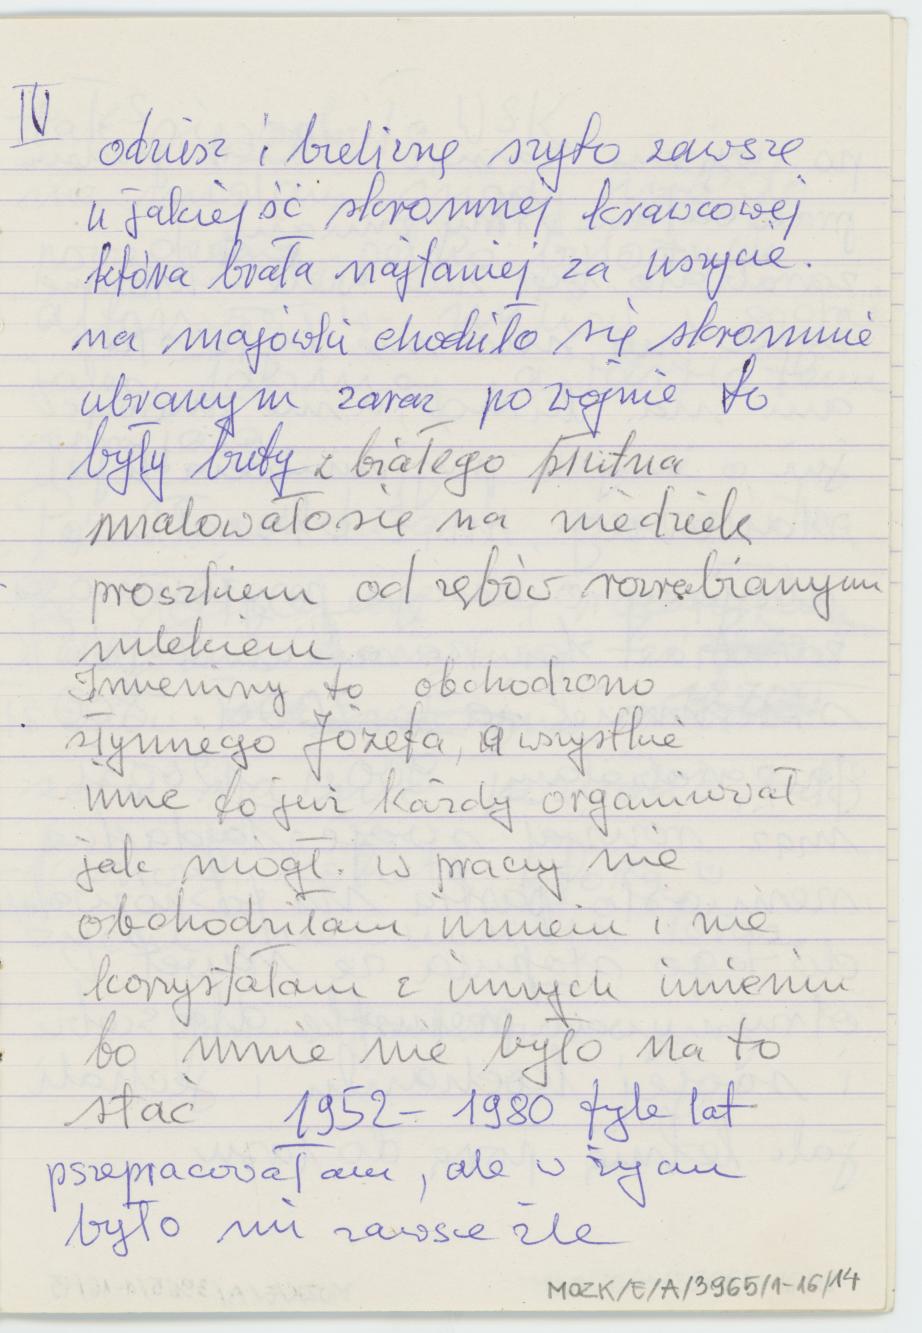 IV
odziesz i bieliznę szyto zawsze
u jakiejść skromnej krawcowej
która brała najtaniej za uszycie.
na majówki chodziło się skromnie
ubranym zaraz po wojnie to
były buty z białego płutna
malowałosię na niedzielę
proszkiem od zębów rozrabianym
mlekiem
Imieniny to obchodzono
słynnego Józefa, a wszystkie
inne to już każdy organizował
jak mogł. w pracy nie
obchodziłam imien i nie
korzystałam z innych imienin
bo mnie nie było na to
stać 1952 - 1980 tyle lat
pszepracowałam, ale w życiu
było mi zawsze źle
MOZK/E/A/3965/1-16/14